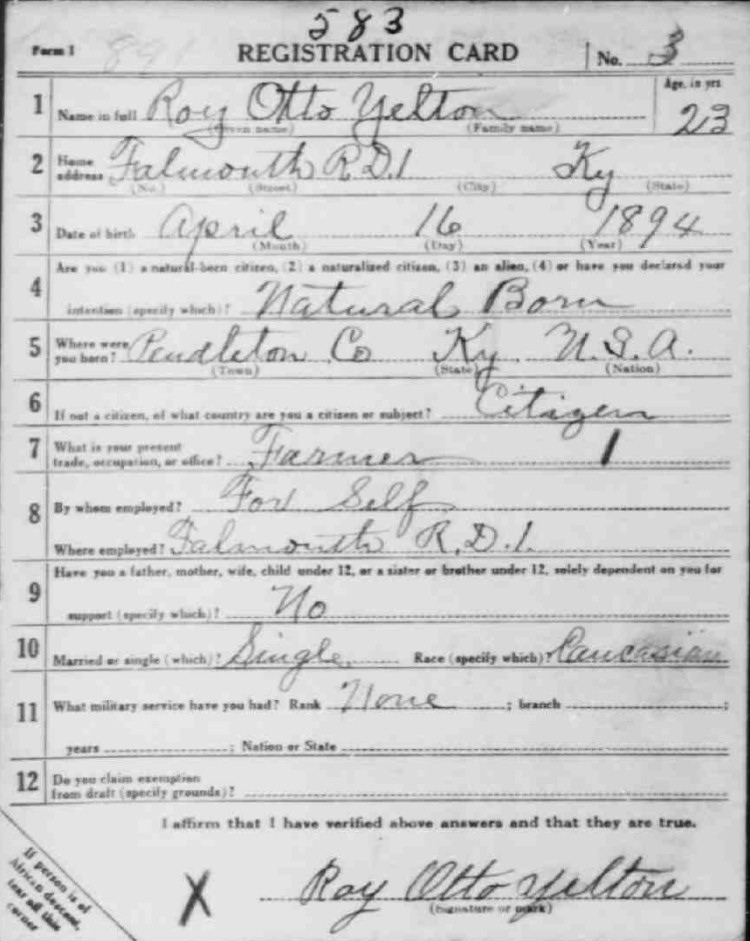 583
Form 1 891 REGISTRATION CARD No. 3
1 Name in full Roy Otto Yelton Age, in yrs 23
(Given name) (Family name)
2 Home address Falmouth R.D.1 Ky
(No.) (Street) (City) (State)
3 Date of birth April 16 1894
(Month) (Day) (Year)
Are you (1) a natural-born citizen, (2) a naturalized citizen, (3) an alien, (4) or have you declared your
4 intention (specify which)? Natural Born
5 Where were you born? Pendleton Co Ky. U.S.A.
(Town) (State) (Nation)
6 If not a citizen, of what country are you a citizen or subject? Citizen
7 What is your present trade, occupation, or office? Farmer 1
8 By whom employed? For Self
Where employed? Falmouth R.D.1.
Have you a father, mother, wife, child under 12, or a sister or brother under 12, solely dependent on you for
9 support (specify which)? No
10 Married or single (which)? Single. Race (specify which)? Caucasian
11 What military service have you had? Rank None ; branch ;
years ; Nation or State
12 Do you claim exemption from draft (specify grounds)?
I affirm that I have verified above answers and that they are true.
If person is of
African descent,
tear off this
corner
X Roy Otto Yelton
(Signature or mark)